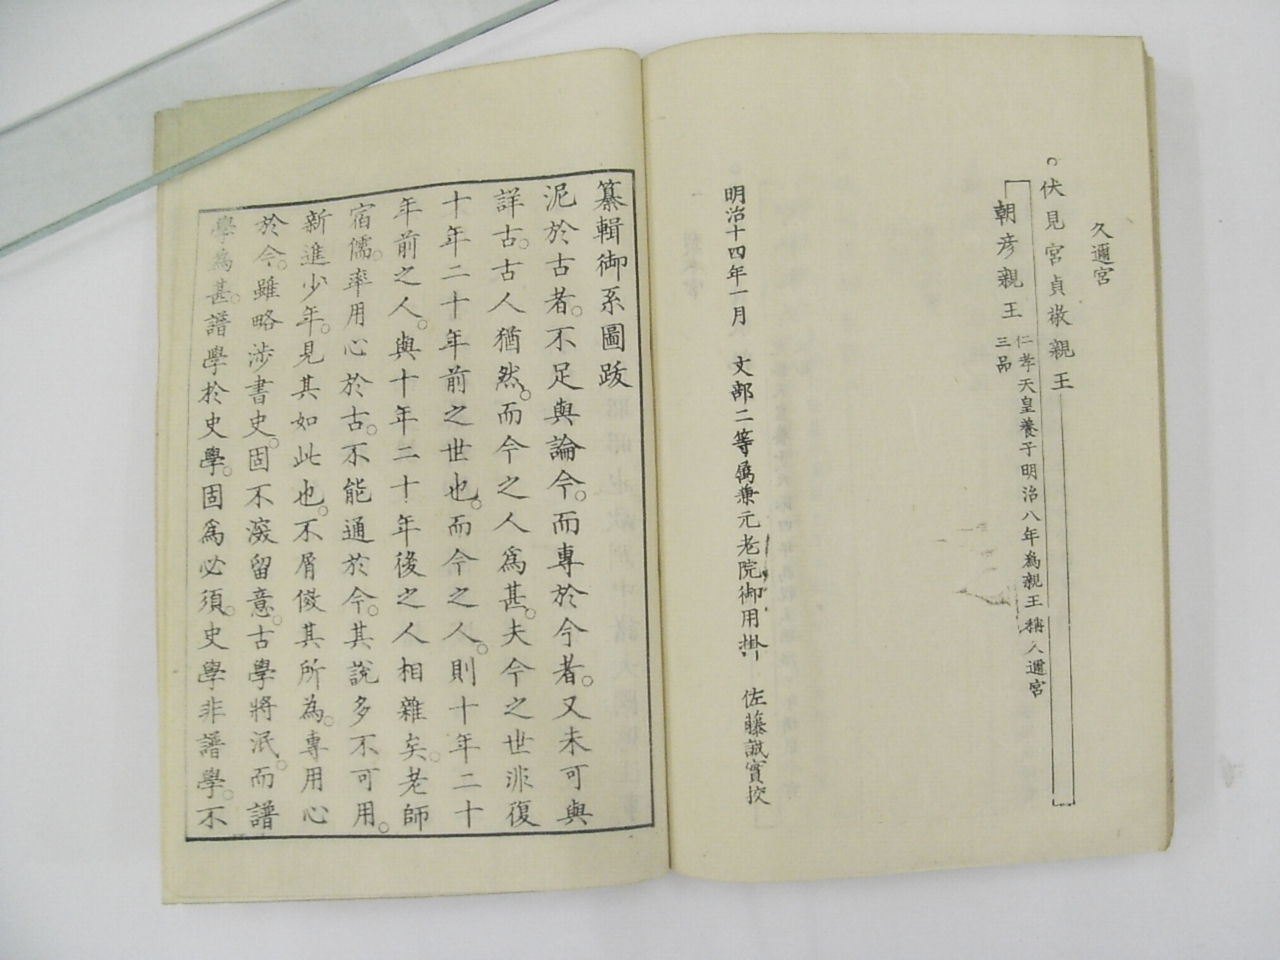 久邇宮
。伏見宮貞敬親王
朝彦親王 仁孝天皇養子明治八年為親王稱久邇宮
三品
明治十四年一月 文部二等属兼元老院御用掛 佐藤誠實挍
纂輯御系圖跋
泥於古者。不足與論今。而專於今者。又未可與
詳古。古人猶然。而今之人爲甚。夫今之世非復
十年二十年前之世也。而今之人。則十年二十
年前之人。與十年二十年後之人相雜矣。老師
宿儒。率用心於古。不能通於今。其說多不可用。
新進少年。見其如此也。不屑傚其所為。專用心
於今。雖略涉書史。固不深留意。古學將泯。而譜
學為甚。譜學於史學。固爲必須。史學非譜學。不